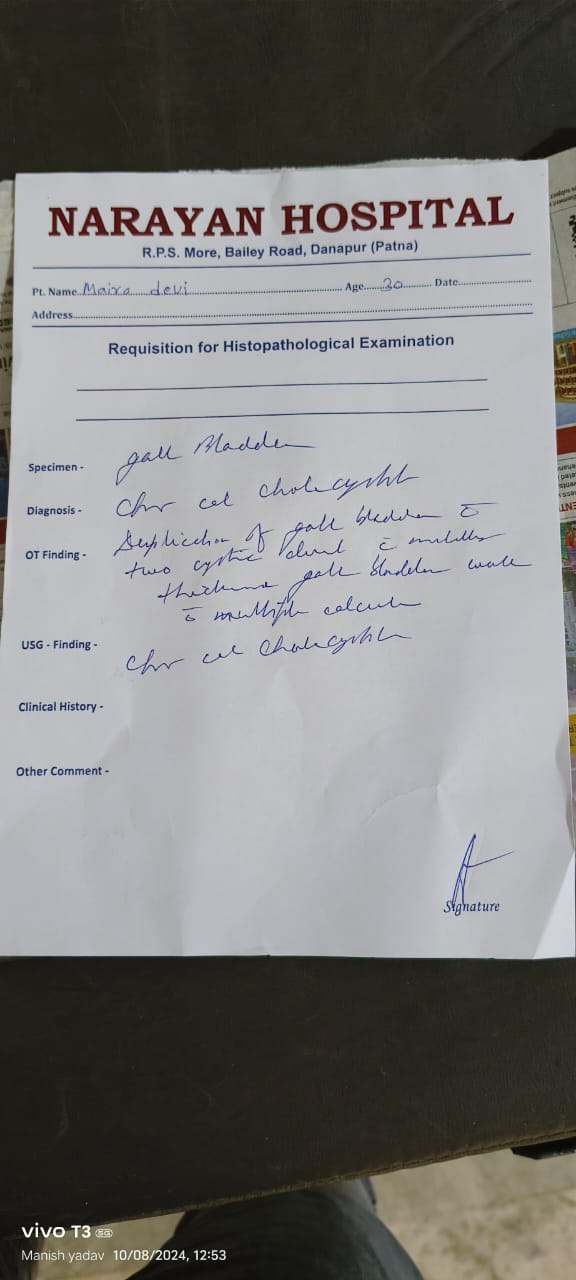 NARAYAN HOSPITAL
R.P.S. More, Bailey Road, Danapur (Patna)
Pt. Name Maira devi Age 30 Date
Address
Requisition for Histopathological Examination
Specimen - gall Bladder
Diagnosis - Chr cal cholecystit
OT Finding - Duplication of gall bladder c̄
two cystic duct c̄
thickness gall bladder wall
c̄ multiple calculi
USG - Finding - Chr cal Cholecystit
Clinical History -
Other Comment -
Signature
vivo T3 5G
Manish yadav 10/08/2024, 12:53